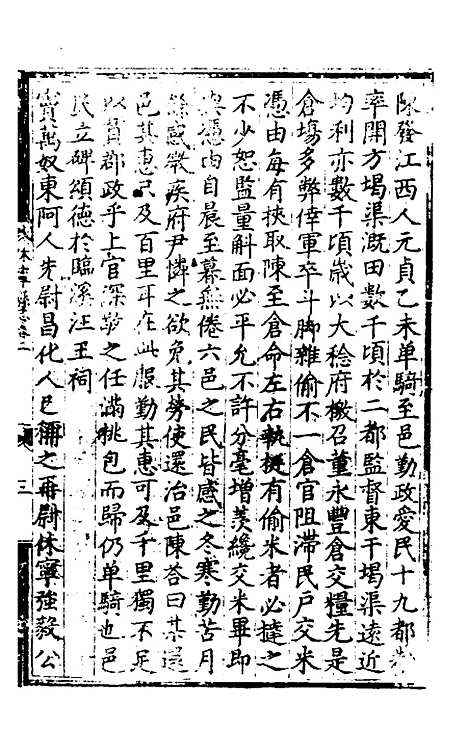 陳發江西人元貞乙未單騎至邑勤政愛民十九都
率開方堨渠溉田數千頃於二都監督東干堨渠遠近
均利亦數千頃歲以大稔府檄召董永豐倉交糧先是
倉塲多弊倖軍卒斗脚雜偷不一倉官阻滯民戶交米
憑由每有挾取陳至倉命左右執挺有偷米者必撻之
不少恕監量斛面必平允不許分毫增羡纔交米畢即
憑由自晨至暮無倦六邑之民皆感之冬寒勤苦月
餘感微疾府尹憐之欲免其勞使還治邑陳答曰某還
邑其惠只及百里耳在此服勤其惠可及千里獨不足
以貧郡政乎上官深敬之任滿桃包而歸仍單騎也邑
民立碑頌德於臨溪汪王祠
竇萬奴東阿人先尉昌化人已稱之再尉休寧強毅公
休寧志卷二
三